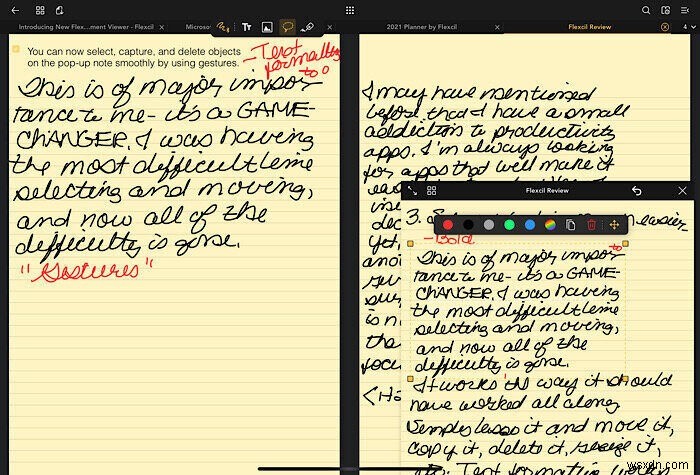 Introducing New Flex...ment Viewer - Flexcil
Microso
Tt
2021 Planner by Flexcil
Flexcil Review
4
You can now select, capture, and delete objects
on the pop-up note smoothly by using gestures.
- Text
formatting
too
This is of major impor
tance to me - it's a GAME-
CHANGER. I was having
the most difficult time
selecting and moving,
and now all of the
difficulty is gone.
"Gestures"
I may have mentioned
before that I have a small
addiction to productivity
apps. I'm always looking
for apps that will make it
yet,
is n
tha
Flexcil Review
3.
easier
- Bold
to
This is of major impor
tance to me - it's a GAME-
CHANGER. I was having
the most difficult time
selecting and moving,
and now all of the
difficulty is gone.
It works the way it should
have worked all along
Simply lasso it and move it,
copy it, delete it, resize it,
etc. Text formatting works
wsxdn.com